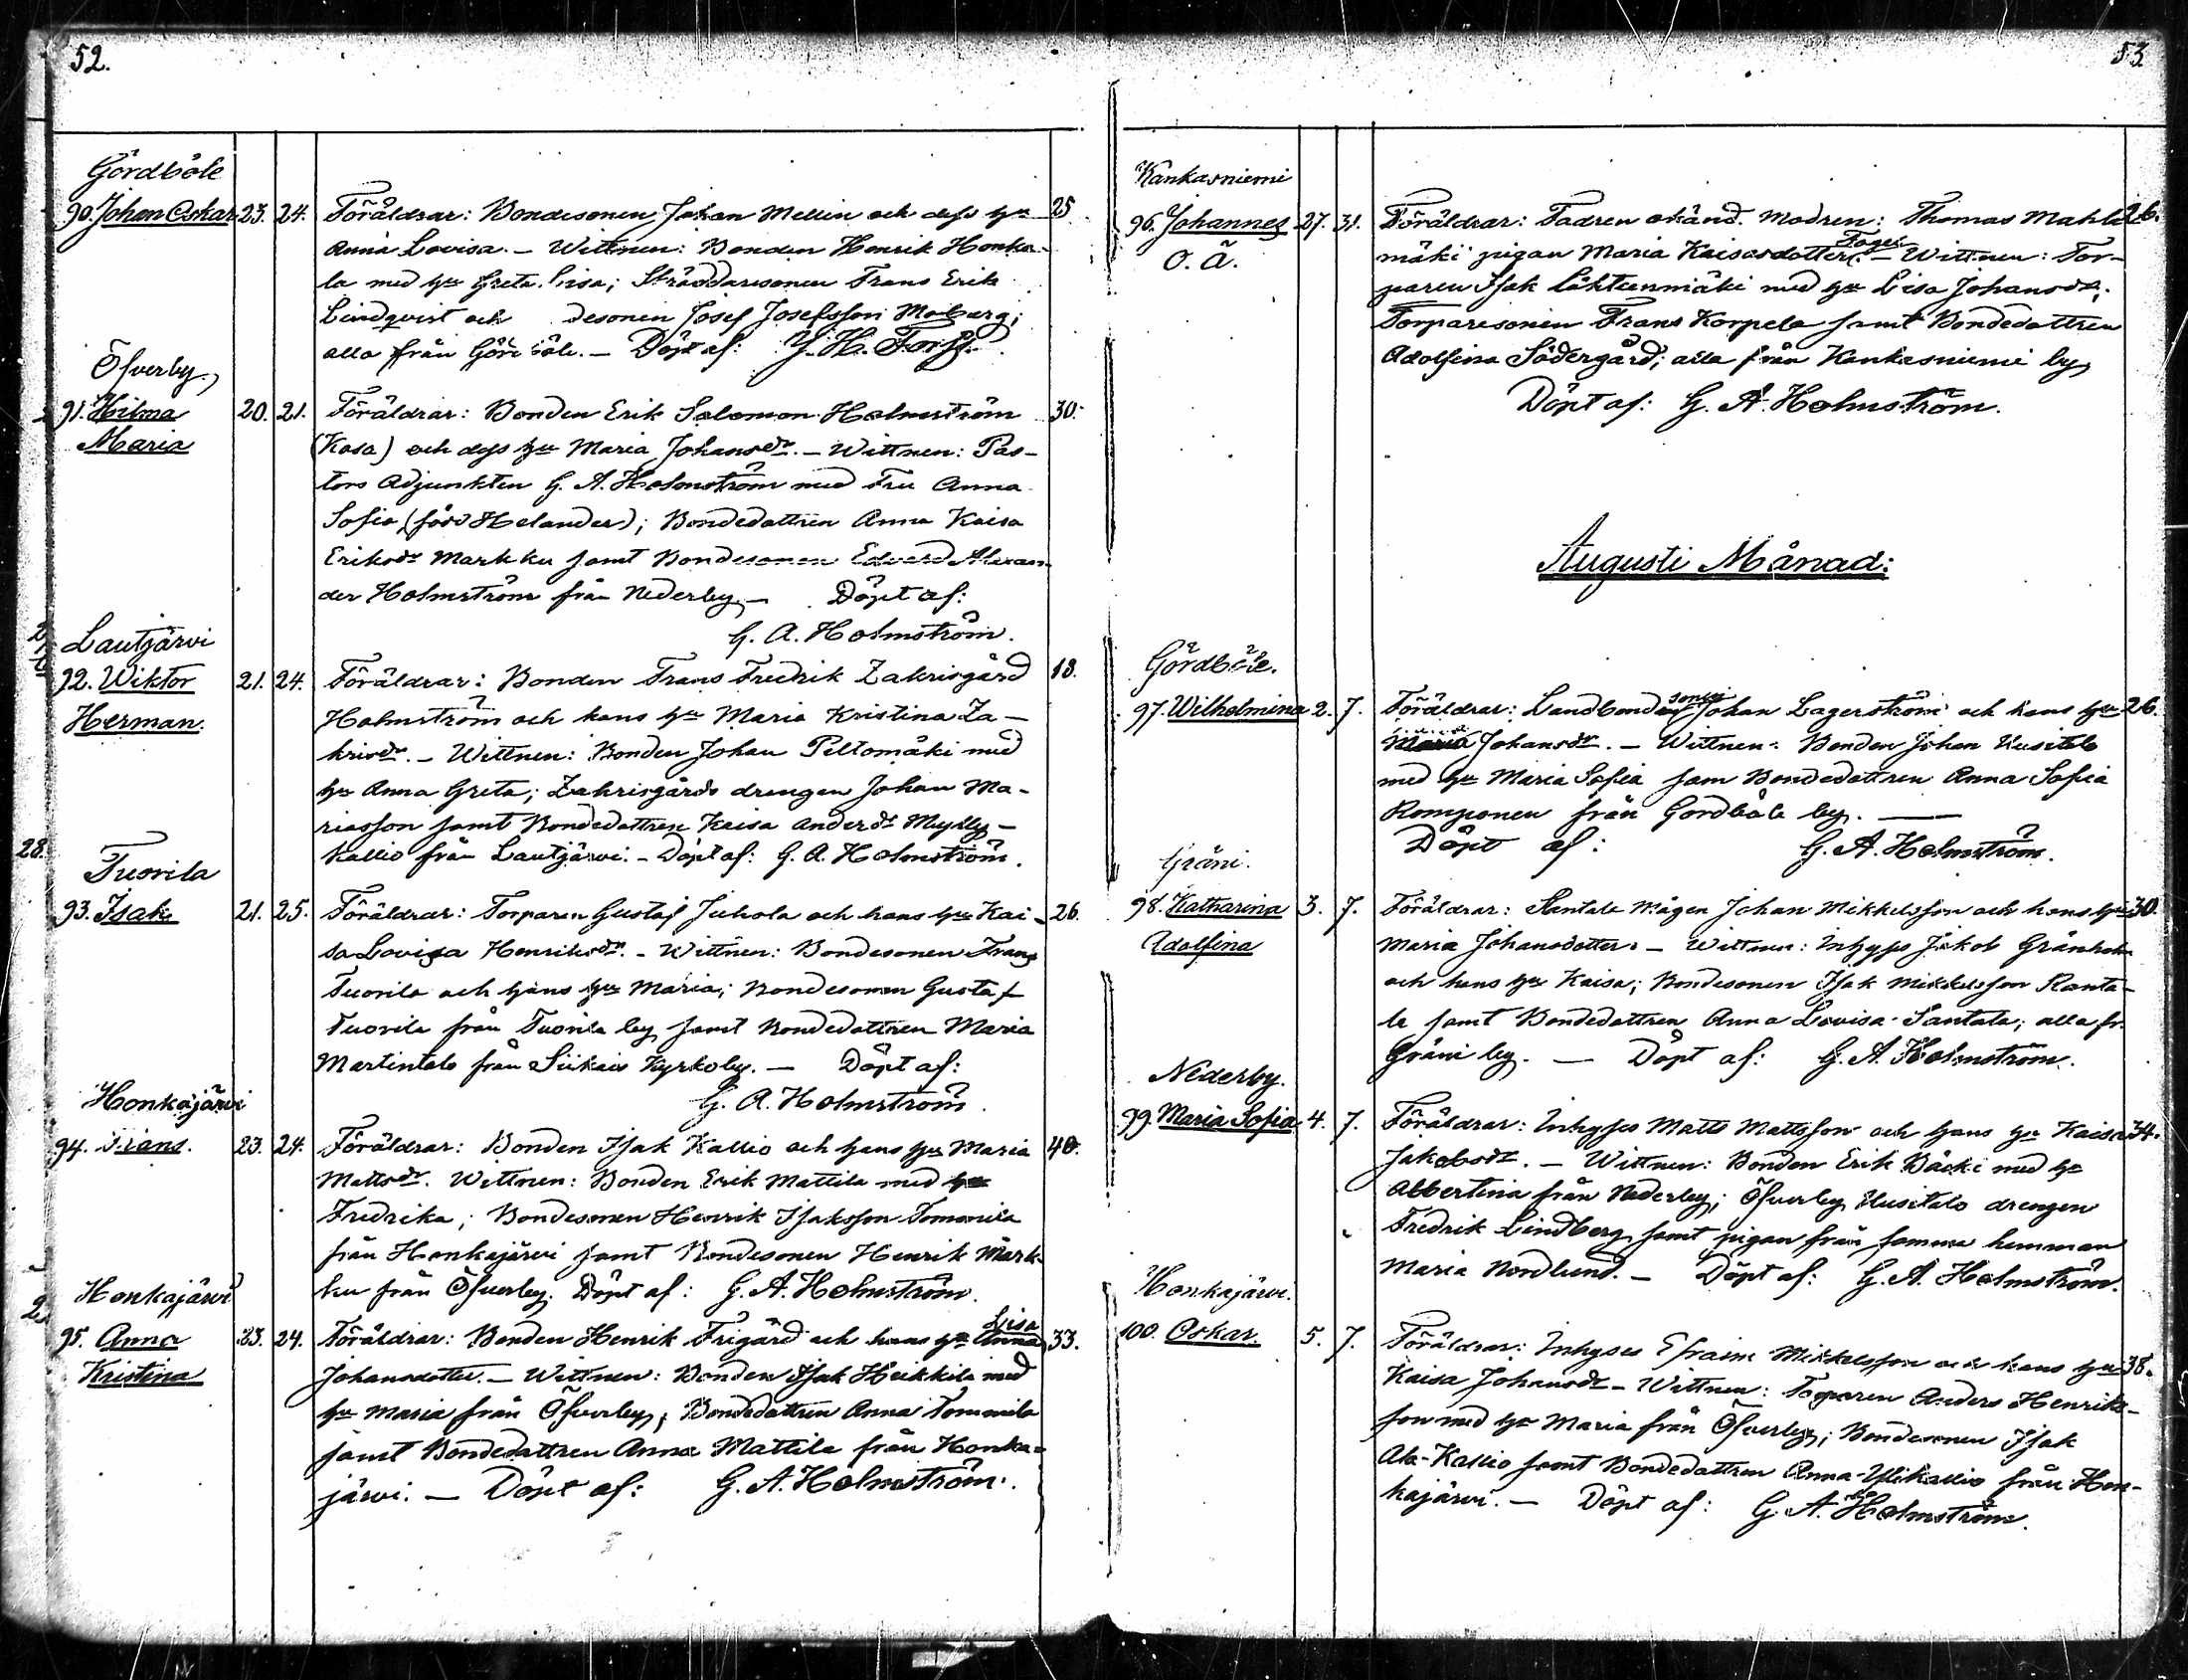 52.
Gördböle
90. Johan Oskar 23. 24. Föräldrar: Bondesonen Johan Mellin och dess hu 25
Anna Lovisa. – Wittnen: Bonden Henrik Honka-
la med hu Greta Lisa; Skräddaresonen Frans Erik
Lindqvist och desonen Josef Josefsson Moberg;
alla från Görd böle. – Döpt af: Y. H. Forss.
Öfverby.
91. Hilma 20. 21. Föräldrar: Bonden Erik Salomon Holmström 30.
Maria (Kasa) och dess hu Maria Johansdr. – Wittnen: Pas-
tors Adjunkten G. A. Holmström med Fru Anna
Sofia (född Helander); Bondedottren Anna Kaisa
Eriksdr Markku samt Bondesonen Edvard Alexan-
der Holmström från Nederby. – Döpt af:
G. A. Holmström.
Lautjärvi
92. Wiktor 21. 24. Föräldrar: Bonden Frans Fredrik Zakrisgård 18.
Herman. Holmström och hans hu Maria Kristina Za-
krisdr. – Wittnen: Bonden Johan Peltomäki med
hu Anna Greta; Zakrisgårds drengen Johan Ma-
riasson samt Bondedottren Kaisa Andersdr Mylly-
kallio från Lautjärvi. – Döpt af: G. A. Holmström.
28.
Tuorila
93. Isak 21. 25. Föräldrar: Torparen Gustaf Juhola och hans hu Kai- 26.
sa Lovisa Henriksdr. – Wittnen: Bondesonen Frans
Tuorila och hans hu Maria; Bondesonen Gustaf
Tuorila från Tuorila by samt Bondedottren Maria
Martintalo från Siikais Kyrkoby. – Döpt af:
G. A. Holmström
Honkajärvi
94. Frans. 23. 24. Föräldrar: Bonden Isak Kallio och hans hu Maria 40.
Mattsdr. Wittnen: Bonden Erik Mattila med hu
Fredrika; Bondesonen Henrik Isaksson Tommila
från Honkajärvi samt Bondesonen Henrik Mark-
ku från Öfverby. Döpt af: G. A. Holmström.
Honkajärvi
2.
Lisa
95. Anna 23. 24. Föräldrar: Bonden Henrik Frigård och hans hu Anna 33.
Kristina Johansdotter. – Wittnen: Bonden Isak Heikkilä med
hu Maria från Öfverby; Bondedottren Anna Tommila
samt Bondedottren Anna Mattila från Honka-
järvi. – Döpt af: G. A. Holmström.
53
Kankasniemi
96. Johannes 27. 31. Föräldrar: Fadren okänd. Modren: Thomas Mahla- 26.
O. Ä. mäki pigan Maria Kaisasdotter. – Wittnen: Tor-
paren Isak Lähteenmäki med hu Lisa Johansdr;
Torparesonen Frans Korpela samt Bondedottren
Adolfina Södergård; alla från Kankasniemi by
Döpt af: G. A. Holmström.
Augusti Månad:
Gördböle.
sonen
97. Wilhelmina 2. 7. Föräldrar: Landbonde Johan Lagerström och hans hu 26.
Maria Johansdr. – Wittnen: Bonden Johan Uusitalo
med hu Maria Sofia sam Bondedottren Anna Sofia
Romponen från Gördböle by. –
Döpt af: G. A. Holmström.
Gräni.
98. Katharina 3. 7. Föräldrar: Santala Mågen Johan Mikkelsson och hans hu 30.
Adolfina Maria Johansdotter. – Wittnen: Inhyses Jakob Gränholm
och hans hu Kaisa; Bondesonen Isak Mikkelsson Ranta-
la samt Bondedottren Anna Lovisa Santala; alla fr.
Gräni by. – Döpt af: G. A. Holmström.
Nederby.
99. Maria Sofia 4. 7. Föräldrar: Inhyses Matts Mattsson och hans hu Kaisa 34.
Jakobsdr. – Wittnen: Bonden Erik Bäcki med hu
Albertina från Nederby; Öfverby Uusitalo drengen
Fredrik Lindberg samt pigan från samma hemman
Maria Nordlund. – Döpt af: G. A. Holmström.
Honkajärvi.
100. Oskar. 5. 7. Föräldrar: Inhyses Efraim Mikkelsson och hans hu 38.
Kaisa Johansdr – Wittnen: Torparen Anders Henriks-
son med hu Maria från Öfverby; Bondesonen Isak
Ala-Kallio samt Bondedottren Anna Ylikallio från Hon-
kajärvi. – Döpt af: G. A. Holmström.